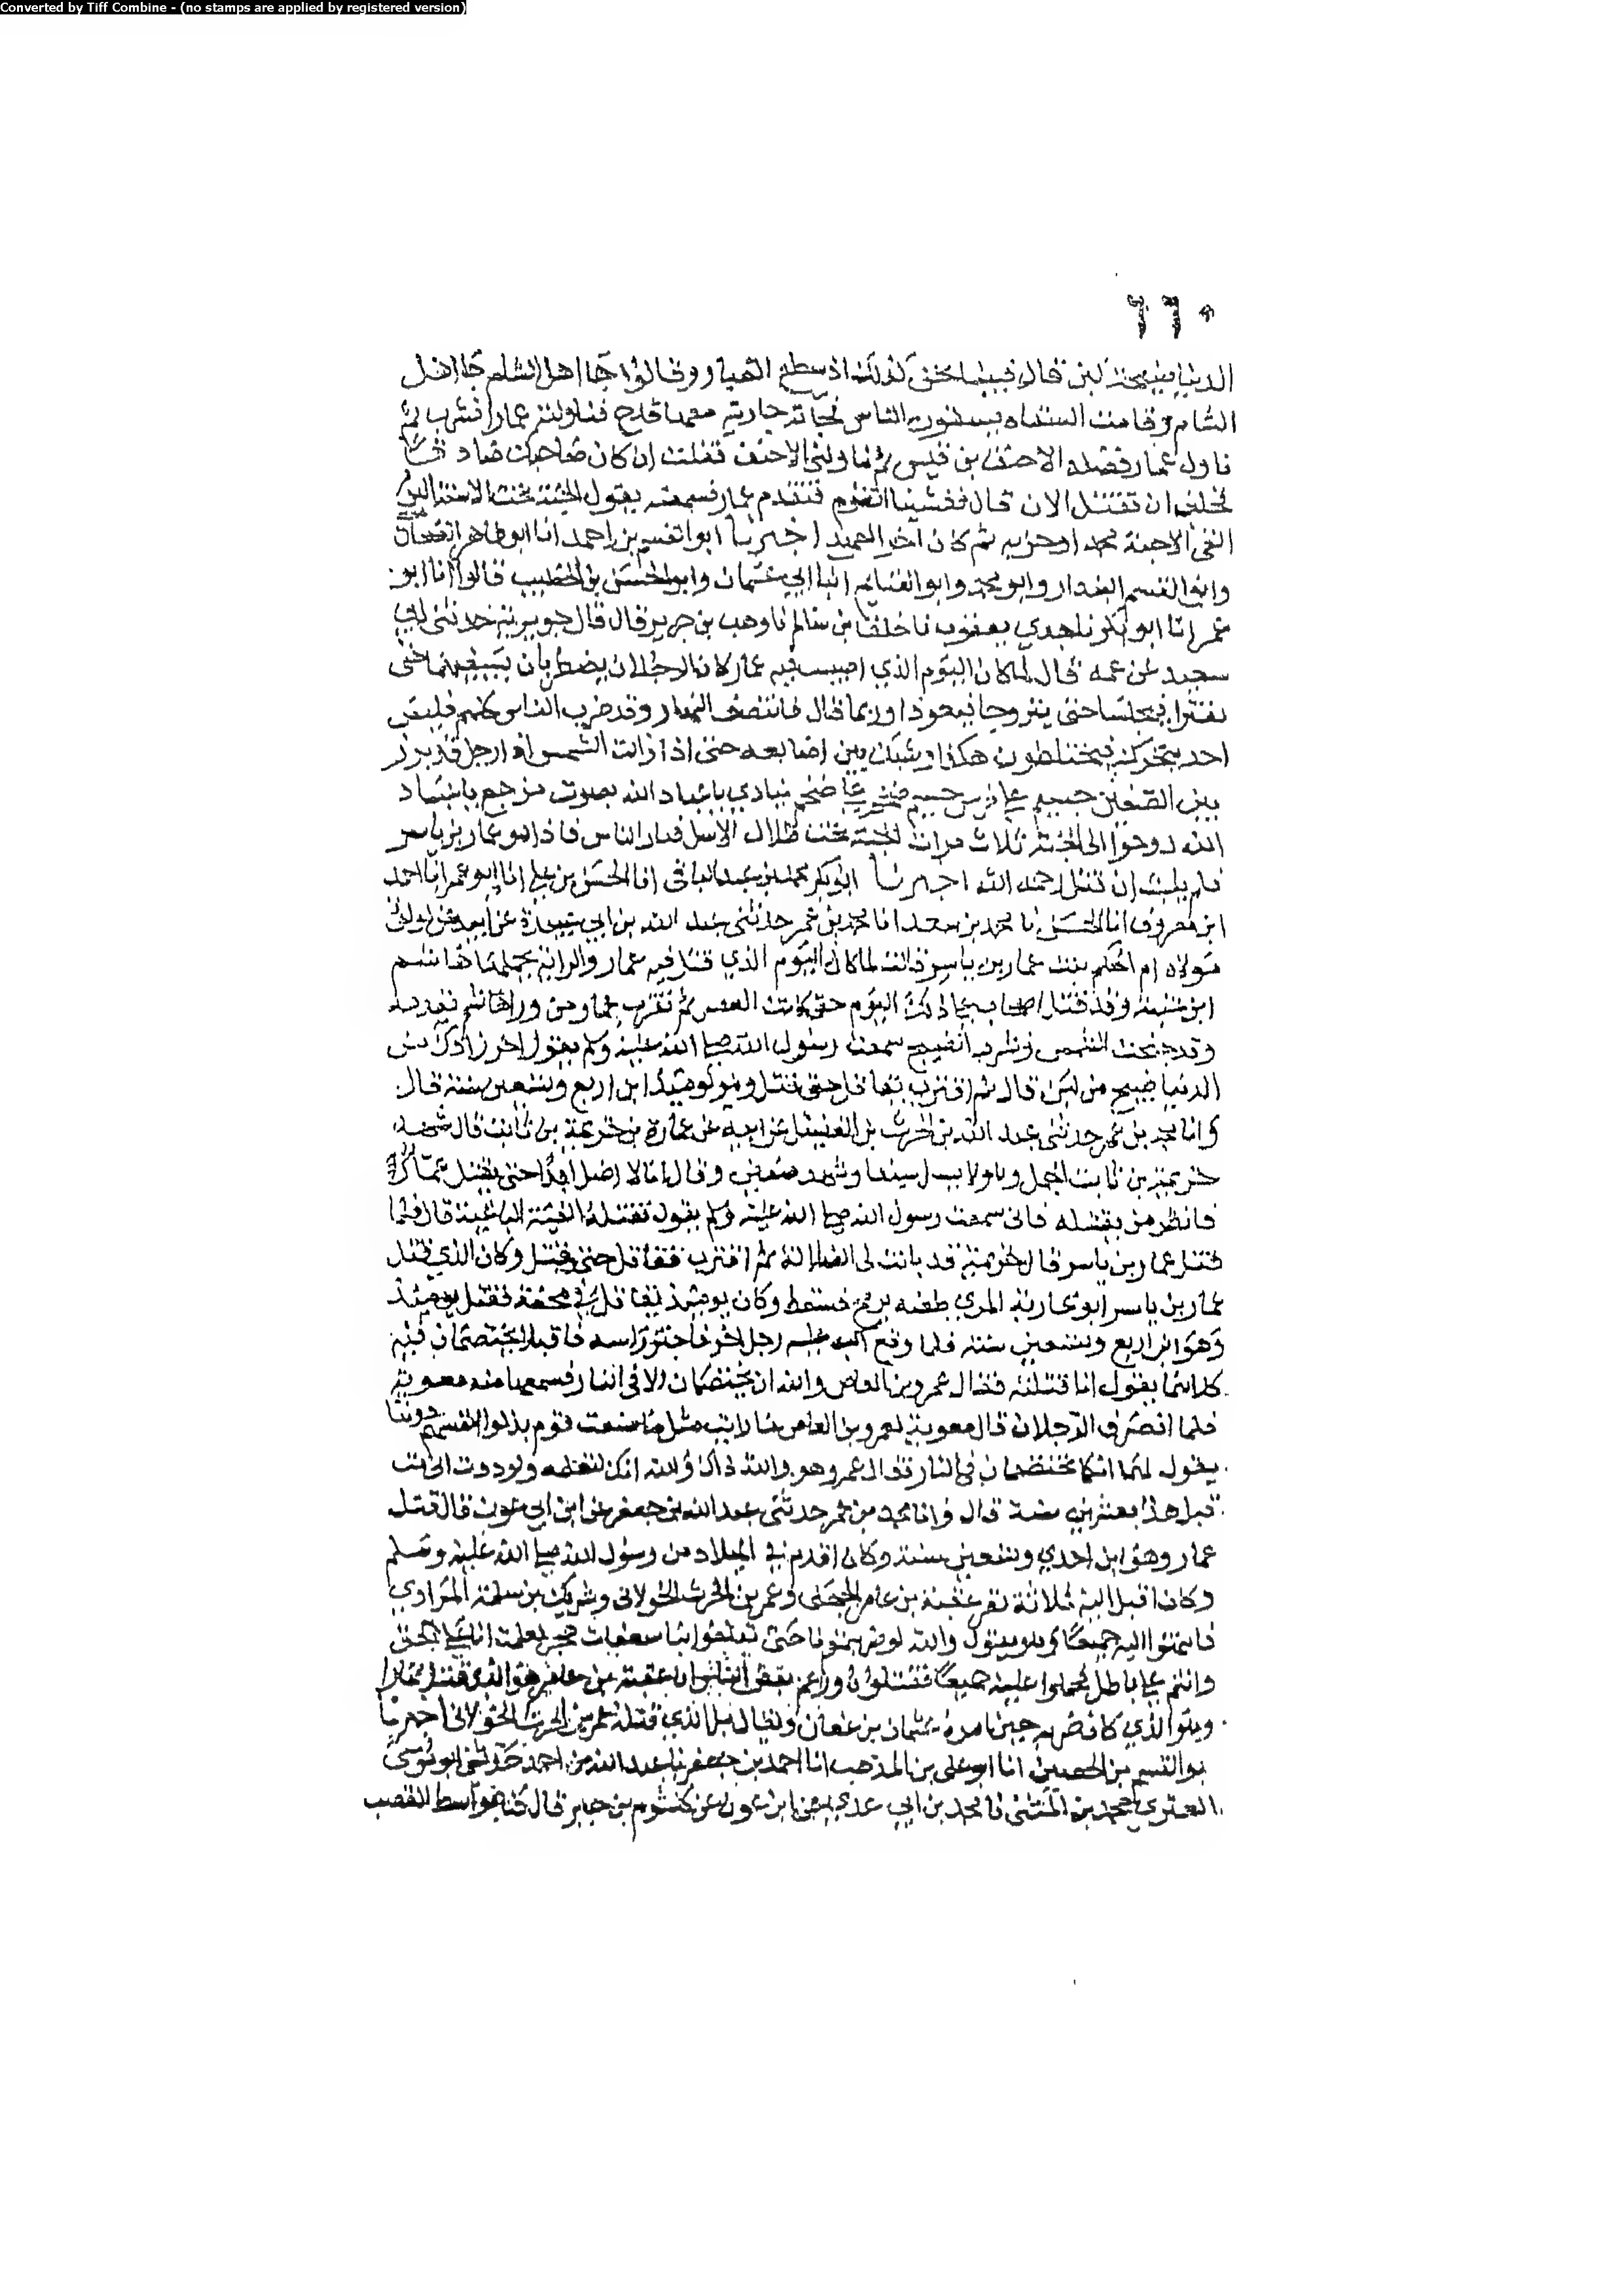 Converted by Tiff Combine - (no stamps are applied by registered version)
٦٦٠
الدنيا ضيحة لبن قال فبينما نحن كذلك اذ سطح الغبار وقالوا جا اهل الشام جا اهل
الشام وقامت السقاه يسقون الناس فجاته جارية معها قدح فناولته عمارا فشرب ثم
ناول عمار فضله الاحنف بن قيس ثم ناولني الاحنف فقلت ان كان صاحبك صادقا
فخليق ان تقتل الان قال فغشينا القوم فتقدم عمار فسمعته يقول الجنة تحت الاسنة اليوم
القى الاحبة محمد او حزبه ثم كان اخر العهد اخبرنا ابو القسم بن احمد انا ابو طاهر القصاري
وابو القسم البندار وابو محمد وابو الغنايم ابنا ابي عثمان وابو الحسن بن الخطيب قالوا انا ابو
عمر انا ابو بكر نا جدي يعقوب نا خلف بن سالم نا وهب بن جرير قال قال جويرية حدثني يحيى
سعيد عن عمه قال لما كان اليوم الذي اصيب فيه عمار كان الرجلان يضطربان بسيفيهما حتى
يفترا فيجلسا حتى يتروحا فيعودا وربما قال فانتصف النهار وقد ضرب الناس كلهم فليس
احد يتحرك فيختلطون هكذا وشبك بين اصابعه حتى اذا زالت الشمس اذا رجل قد برز
بين الصفين جسيم على فرس جسيم ضخم على ضخم ينادي يا عباد الله بصوت مرجع يا عباد
الله روحوا الى الجنة ثلاث مرات الجنة تحت ظلال الاسل فدار الناس فاذا هو عمار بن ياسر
فلم يلبث ان قتل رحمه الله اخبرنا ابو بكر محمد بن عبد الباقي انا الحسن بن علي انا ابو عمر انا احمد
ابن معروف انا الحسين نا محمد بن سعد انا محمد بن عمر حدثني عبد الله بن ابي عبيدة عن ابيه عن لولوة
مولاه ام الحكم بنت عمار بن ياسر قالت لما كان اليوم الذي قتل فيه عمار والراية يحملها هاشم
ابن عتبة وقد قتل اصحاب علي ذلك اليوم حتى كانت العصر ثم تقرب عمار من ورا هاشم يقدمه
وقد جنحت الشمس للغروب ومع عمار ضيح سمعت رسول الله صلى الله عليه وسلم يقول اخر زادك من
الدنيا ضيح من لبن قال ثم اقترب فقاتل حتى قتل وهو يوميذ ابن اربع وتسعين سنة قال
وانا محمد بن عمر حدثني عبد الله بن الحرث بن الفضيل عن ابيه عن عمارة بن خزيمة بن ثابت قال شهد
خزيمة بن ثابت الجمل وهو لا يسل سيفا وشهد صفين وقال انا لا اصل ابدا حتى يقتل عمار
فانظر من يقتله فاني سمعت رسول الله صلى الله عليه وسلم يقول تقتله الفئة الباغية قال فلما
قتل عمار بن ياسر قال خزيمة قد بانت لى الضلالة ثم اقترب فقاتل حتى قتل وكان الذي قتل
عمار بن ياسر ابو غادية المري طعنه برمح فسقط وكان يوميذ يقاتل في محفة فقتل يوميذ
وهو ابن اربع وتسعين سنة فلما وقع اكب عليه رجل اخر فاجتز راسه فاقبلا يختصمان فيه
كلاهما يقول انا قتلته فقال عمرو بن العاص والله ان يختصمان الا في النار فسمعها منه معوية
فلما انصرف الرجلان قال معوية لعمرو بن العاص ما رايت مثل ما صنعت قوم بذلوا انفسهم دوننا
يقول لهما انكما تختصمان في النار فقال عمرو هو والله ذاك والله انك لتعلمه ولوددت اني مت
قبل هذا بعشرين سنة قال وانا محمد بن عمر حدثني عبد الله بن جعفر عن ابن ابي عون قال قتل
عمار وهو ابن احدي وتسعين سنة وكان اقدم في الميلاد من رسول الله صلى الله عليه وسلم
وكان اقبل اليه ثلاثة نفر عقبة بن عامر الجهني وعمر بن الحرث الخولاني وشريك بن سلمة المرادي
فانتهوا اليه جميعا وهو يقول والله لو ضربتمونا حتى تبلغوا بنا سعفات هجر لعلمت انا على الحق
وانتم على باطل فحملوا عليه جميعا فقتلوه وزعم بعض الناس ان عقبة بن عامر هو الذي قتل عمارا
وهو الذي كان ضربه حين امره عثمان بن عفان ويقال بل الذي قتله عمر بن الحرث الخولاني اخبرنا
ابو القسم بن الحصين انا ابو علي بن المذهب انا احمد بن جعفر نا عبد الله بن احمد حدثني ابو موسى
العنزي محمد بن المثنى نا محمد بن ابي عدي عن ابن عون عن كلثوم بن جبر قال كنا بواسط القصب